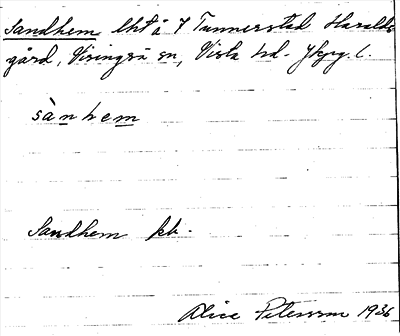 Sandhem lht å 7 Tunnerstad Haralds-
gård, Visingsö sn, Vista hd. Jkpg. l.
sànhem
Sandhem kb.
Alice Petersson 1936